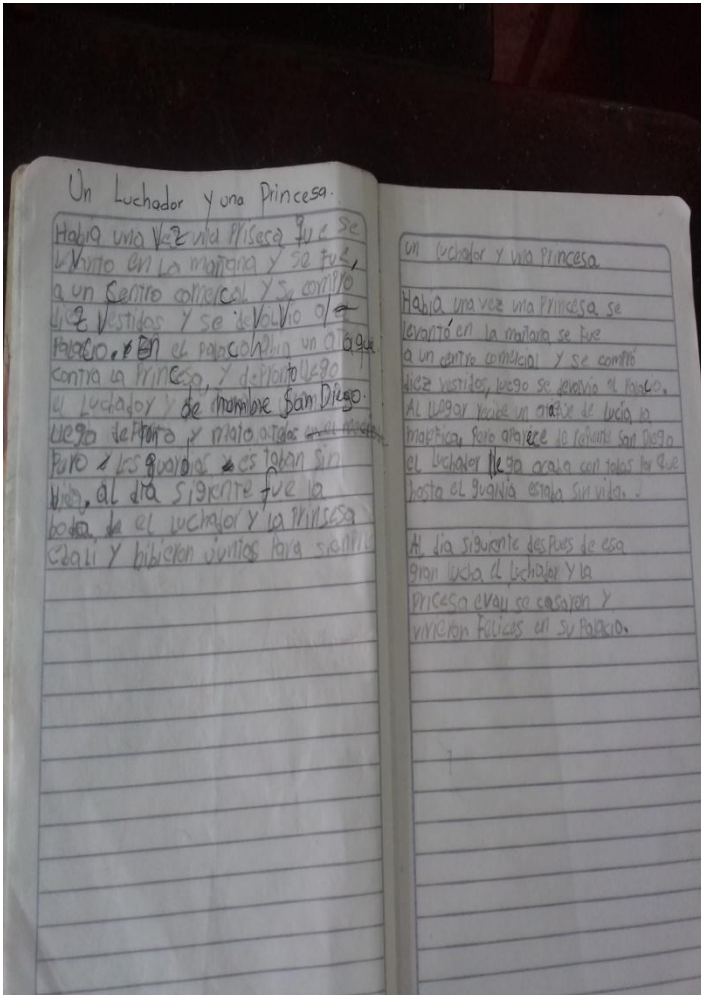 Un Luchador y una Princesa.
Había una Vez una Prisesa que se
en la mañana y se fue,
a un Centro comercal y se compro
diez Vestidos y se devolvio al
Palacio. En el Palacio había un ataque
contra la Princesa, y depronto llego
el Luchador y de nombre San Diego.
llego depronto y mato a todos
Pero los guardias estaban sin
vida, al día sigiente fue la
boda de el Luchador y la Prinsesa
y bibieron juntos Para siempre
Un Luchador y una Princesa
Había una vez una Princesa se
levantó en la mañana se fue
a un centro comercial y se compró
diez vestidos, luego se devolvio al Palacio.
Al llegar recibe un ataque de Lucía la
malefica, Pero aparece de San Diego
el Luchador llega acaba con todos los que
hasta el guardia estaba sin vida.
Al día siguiente despues de esa
gran lucha el luchador y la
Pricesa evali se casaron y
vivieron Felices en su Palacio.